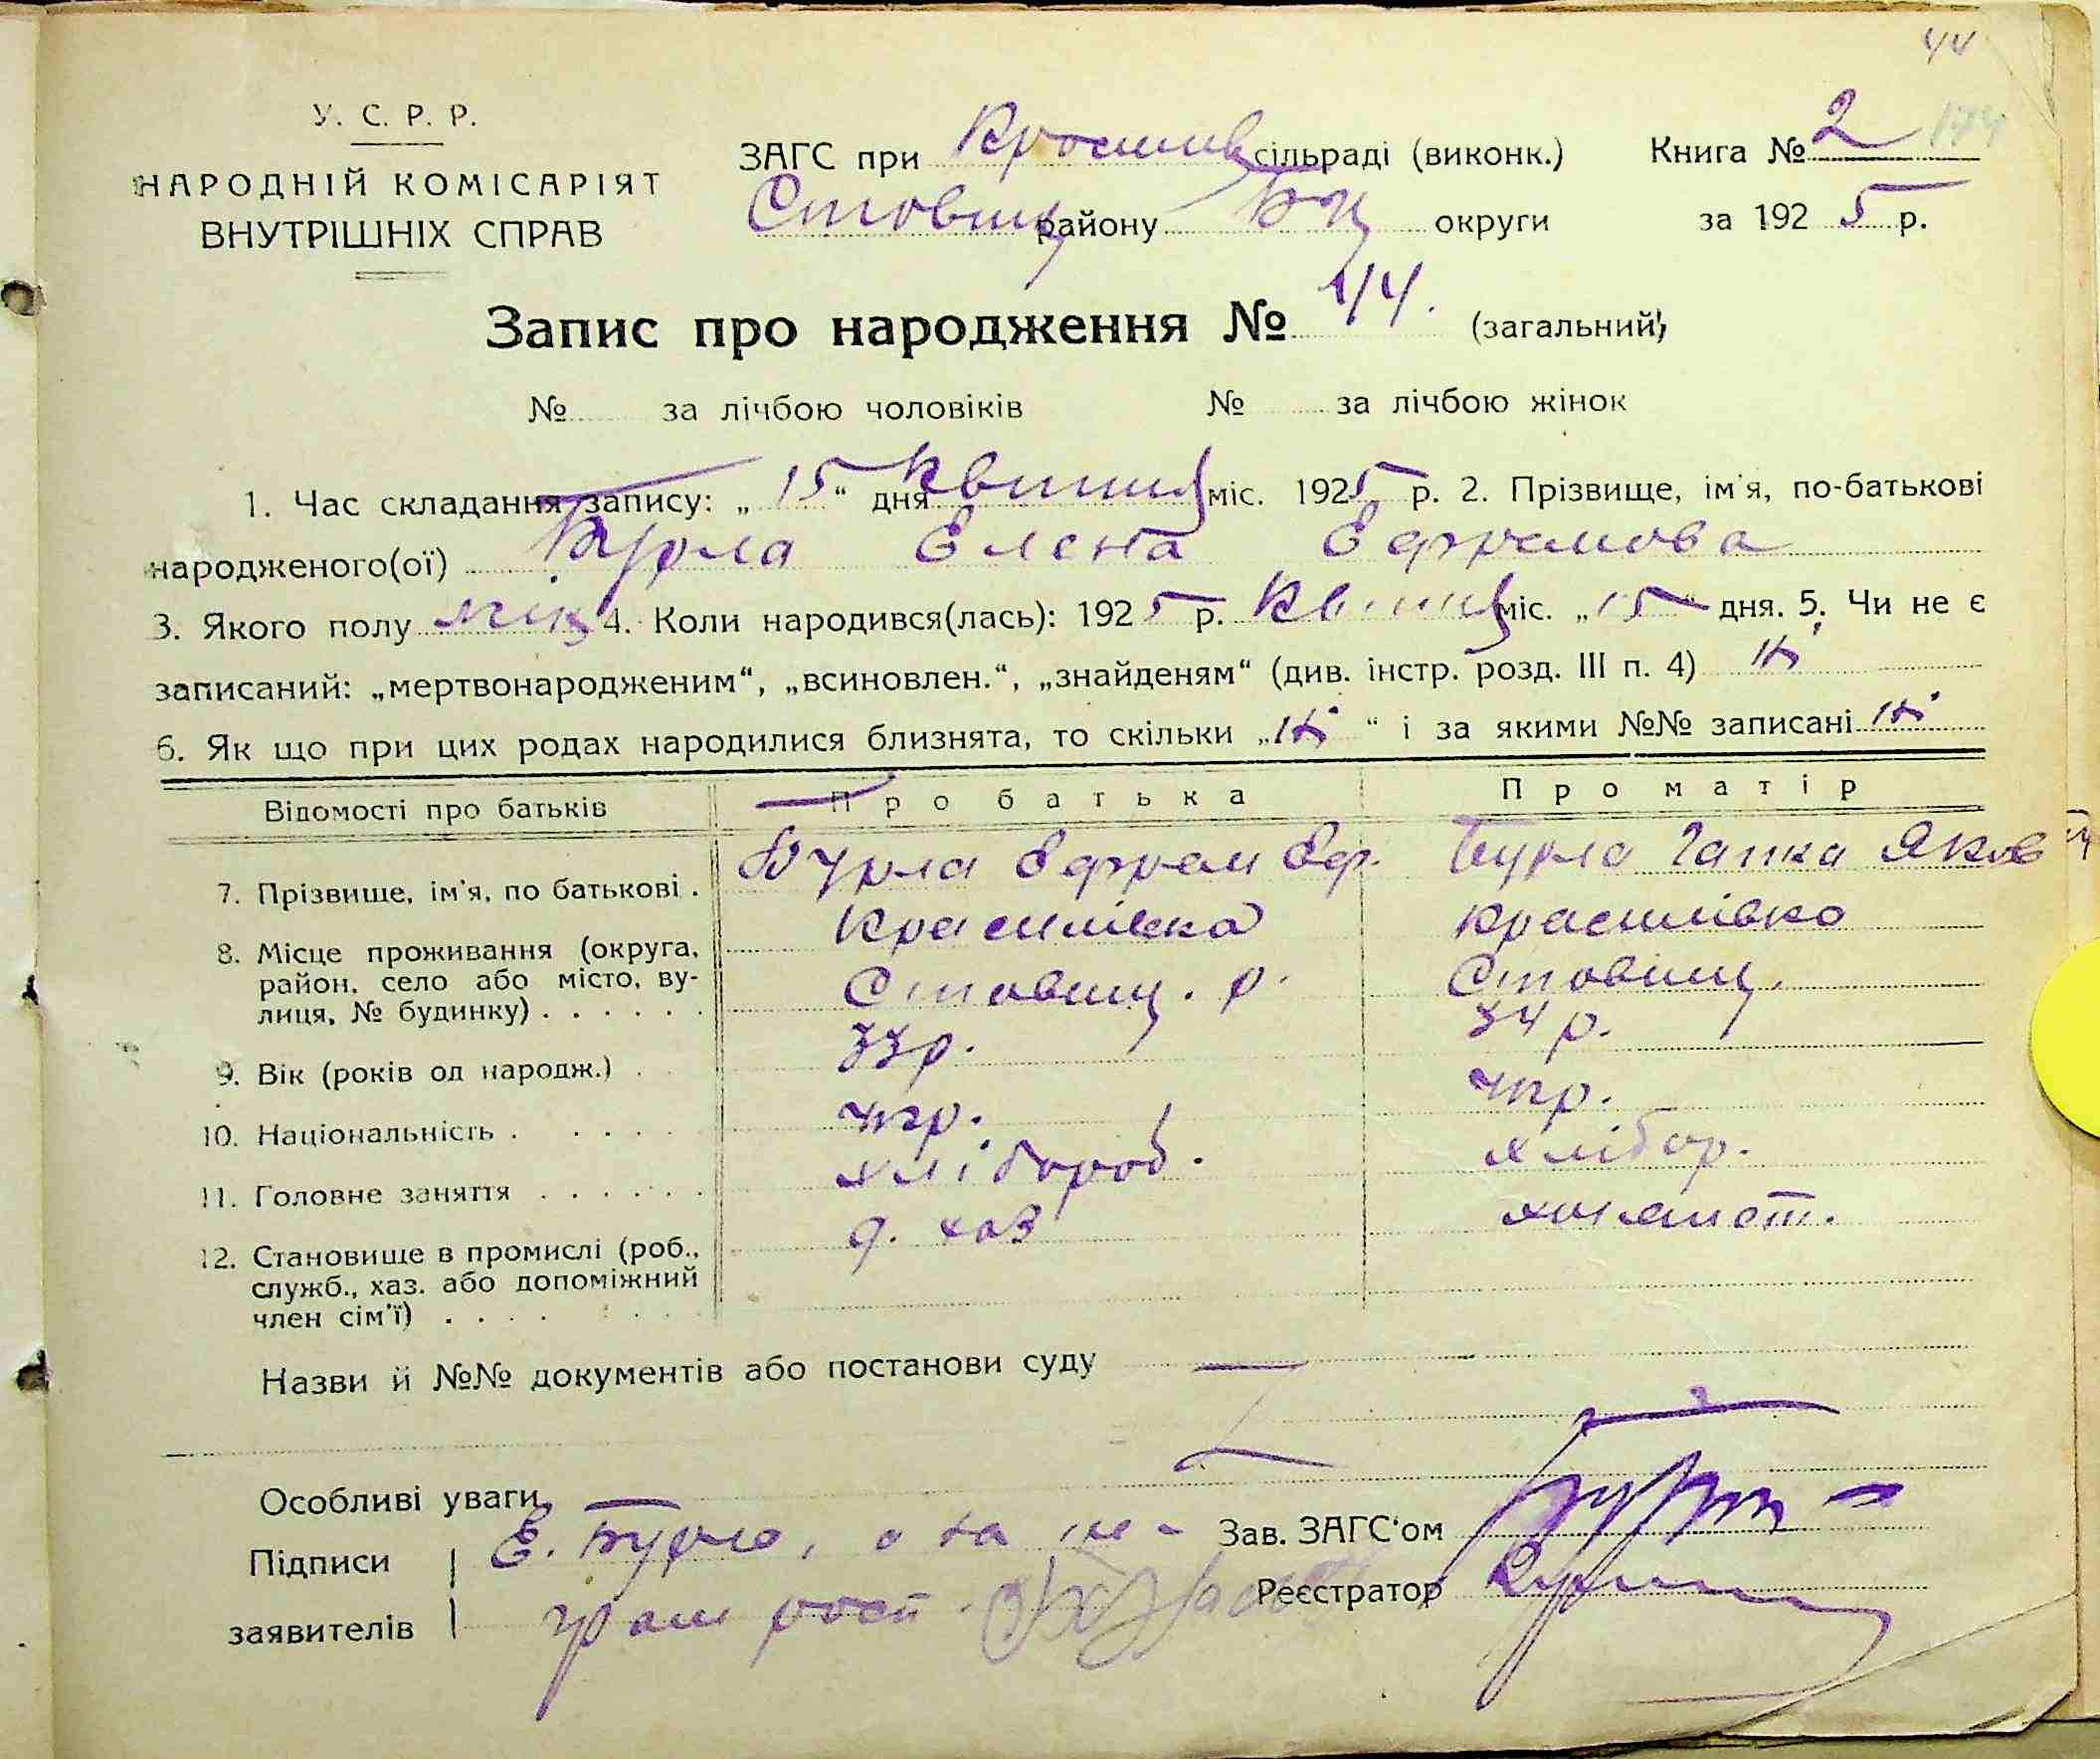 44
У. С. Р. Р.
НАРОДНІЙ КОМІСАРІЯТ
ВНУТРІШНІХ СПРАВ
ЗАГС при Красилів сільраді (виконк.) Книга № 2 174
Ставищ району БЦ округи за 1925 р.
Запис про народження № 44. (загальний)
№ за лічбою чоловіків № за лічбою жінок
1. Час складання запису: „15“ дня Квітня міс. 1925 р. 2. Прізвище, ім'я, по-батькові
народженого(ої) Бурла Елена Ефремова
3. Якого полу жін 4. Коли народився(лась): 1925 р. Квітня міс. „15“ дня. 5. Чи не є
записаний: „мертвонародженим“, „всиновлен.“, „знайденям“ (див. інстр. розд. III п. 4) ні
6. Як що при цих родах народилися близнята, то скільки „ні“ і за якими №№ записані ні
Відомості про батьків Про батька Про матір
7. Прізвище, ім'я, по батькові . Бурла Ефрем Еф. Бурла Гапка Яков
8. Місце проживання (округа, Красилівка Красилівка
район, село або місто, ву- Ставищ. р. Ставищ.
лиця, № будинку) . . . . . .
9. Вік (років од народж.) . 33р. 34 р.
10. Національність . . . . . укр. укр.
11. Головне заняття . . . . . . хлібороб. хлібор.
12. Становище в промислі (роб., д. хаз
служб., хаз. або допоміжний
член сім'ї) . . . .
Назви й №№ документів або постанови суду
Особливі уваги
Підписи Е. Бурла, а за не- Зав. ЗАГС'ом
заявителів грам росп. Реєстратор